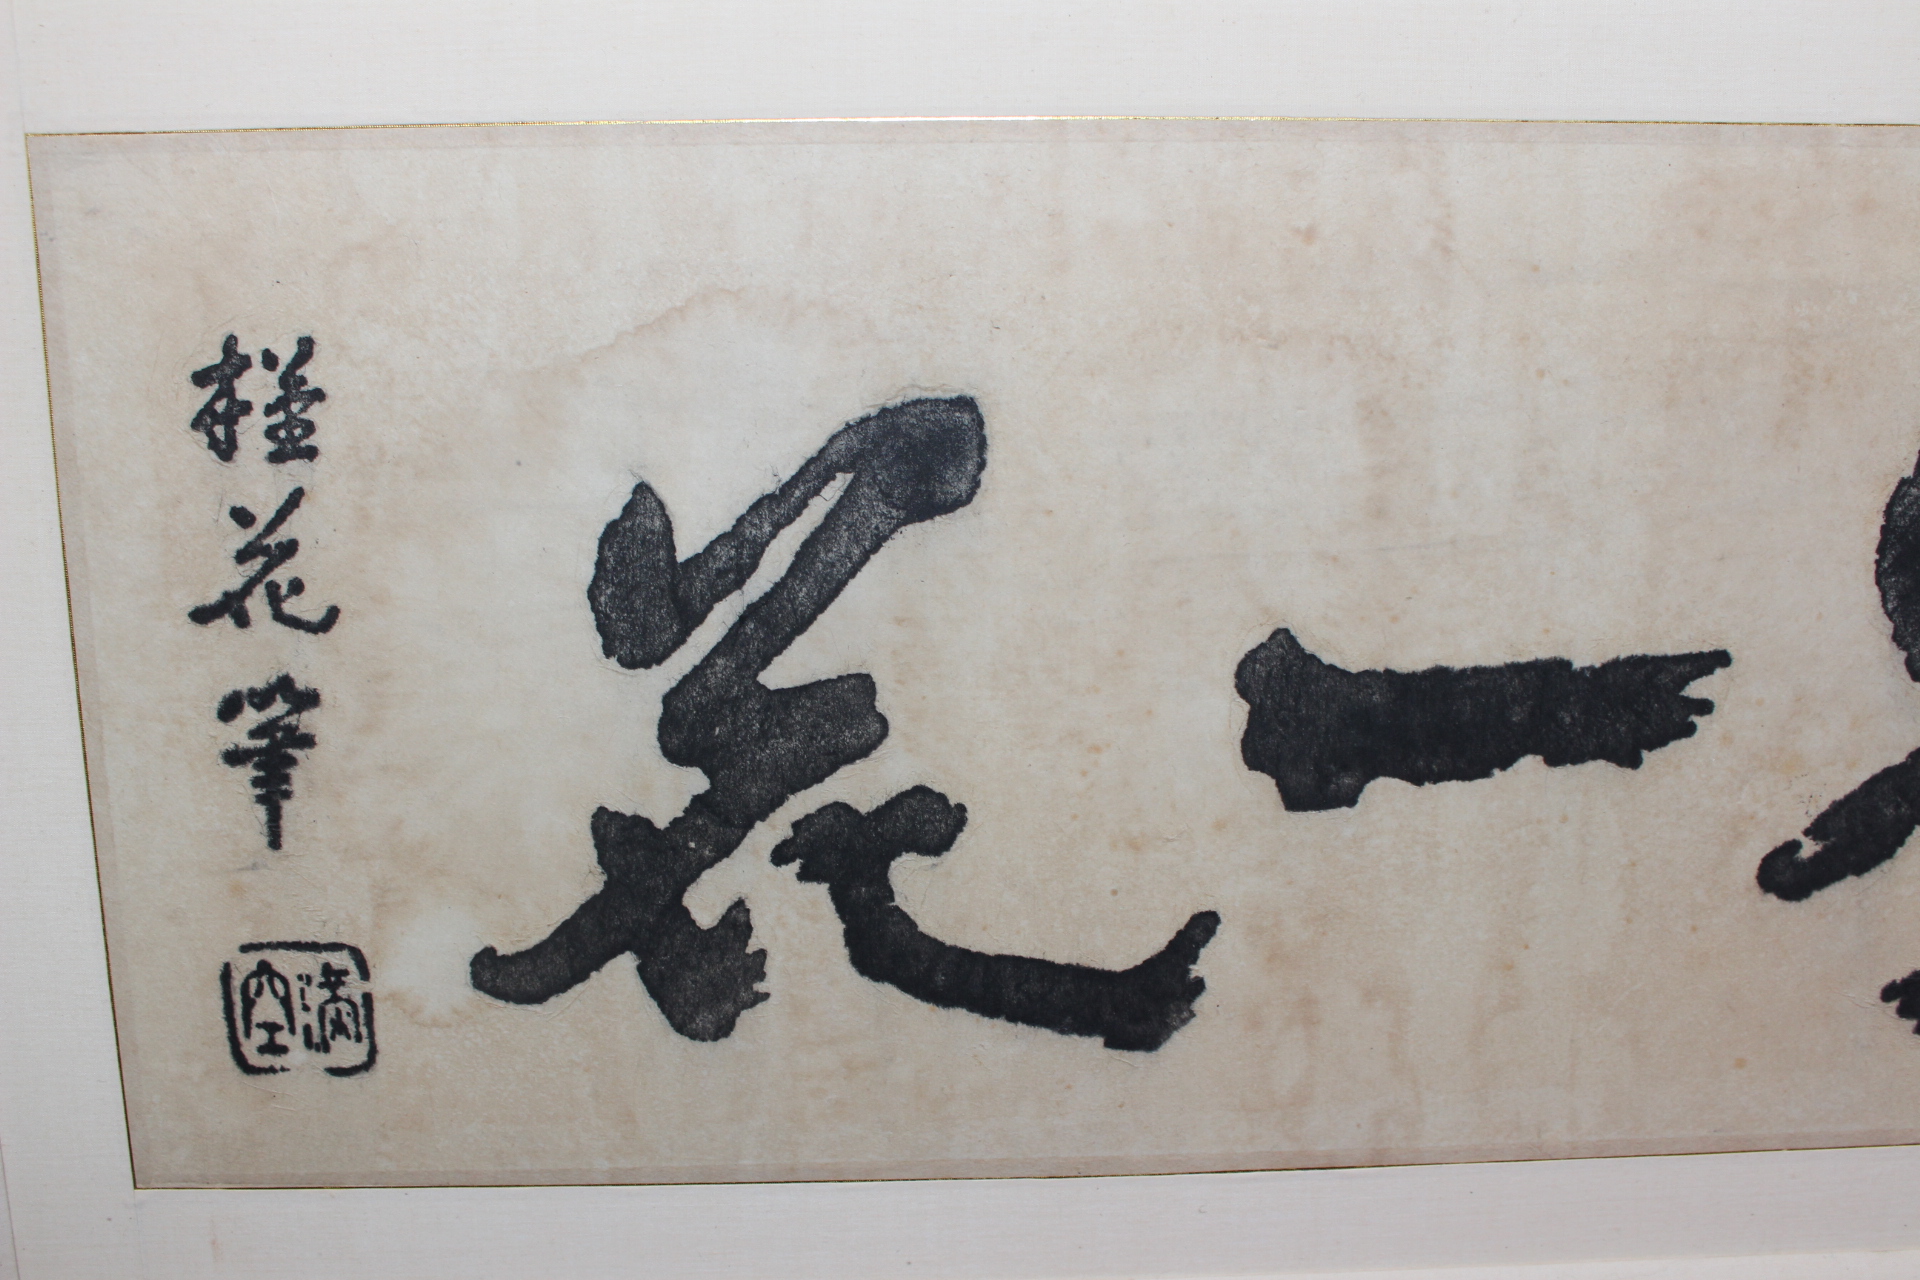 一花
槿花筆
滿空